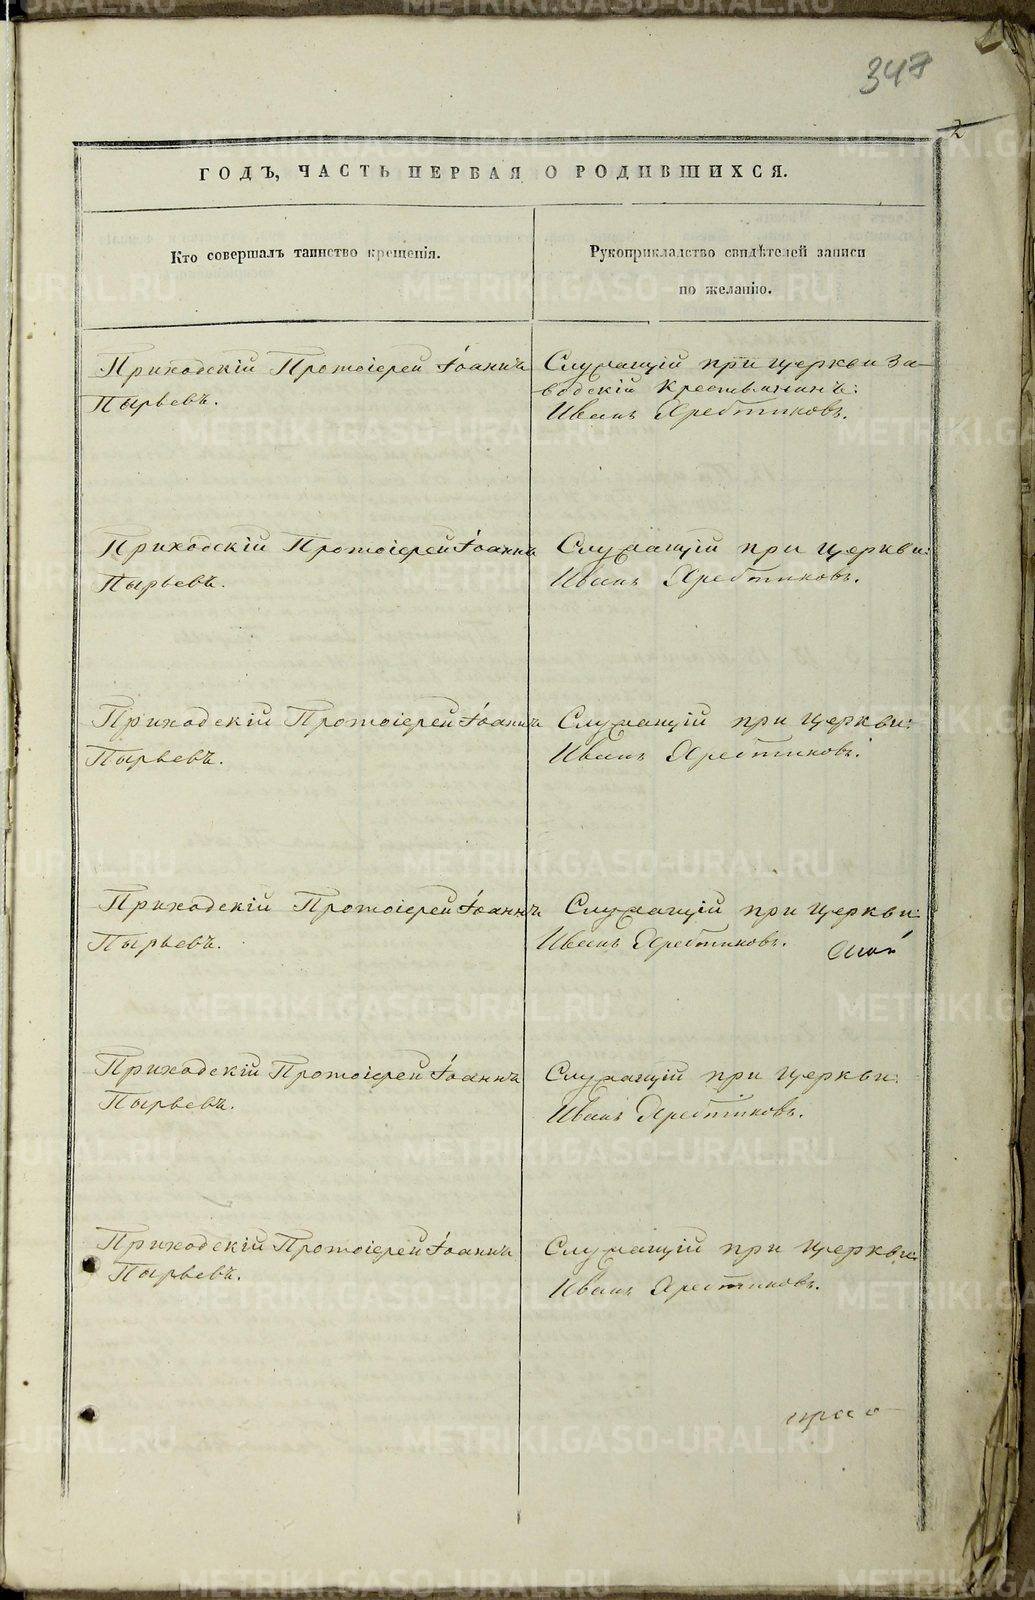 347
2
ГОДЪ, ЧАСТЬ ПЕРВАЯ О РОДИВШИХСЯ.
Кто совершалъ таинство крещенія.
Рукоприкладство свидѣтелей записи
по желанію.
Приходскій Протоіерей Іоаннъ
Пырьевъ.
Служащій при церкви За-
водскій Крестьянинъ:
Иванъ Хребтиковъ.
Приходскій Протоіерей Іоаннъ
Пырьевъ.
Служащій при церкви:
Иванъ Хребтиковъ.
Приходскій Протоіерей Іоаннъ
Пырьевъ.
Служащій при церкви:
Иванъ Хребтиковъ.
Приходскій Протоіерей Іоаннъ
Пырьевъ.
Служащій при церкви:
Иванъ Хребтиковъ.
Приходскій Протоіерей Іоаннъ
Пырьевъ.
Служащій при церкви:
Иванъ Хребтиковъ.
Приходскій Протоіерей Іоаннъ
Пырьевъ.
Служащій при церкви:
Иванъ Хребтиковъ.
METRIKI.GASO-URAL.RU